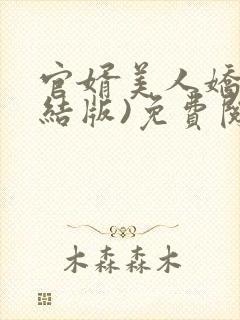 官婿美人嬌
結版)免費閱
木森森木